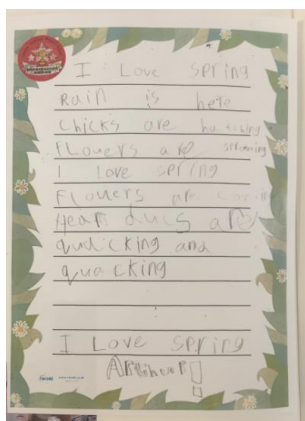 I Love Spring
Rain is here
Chicks are hatching
Flowers are
I love spring
Flowers are
Hear ducs are
qudicking and
quacking
I Love Spring
Arthur!
twinkl